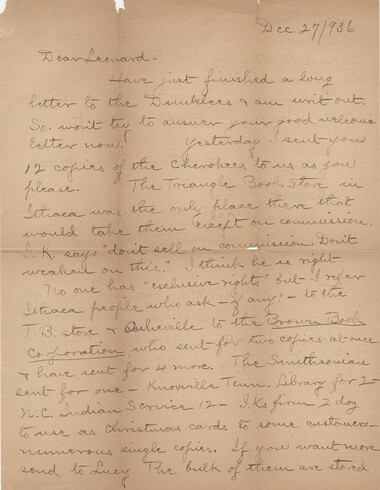 Dec. 27/936
Dear Leonard -
Have just finished a long
letter to the Dunklees & am writ out.
So. wont try to answer your good welcome
letter now. Yesterday I sent you
12 copies of the Cherokees to us as you
please. The Triangle Book Store in
Ithaca was the only place there that
would take them except on commission.
I. K. says "dont sell on commission. Dont
weaken on this." I think he is right.
No one has "exclusive rights" but I refer
Ithaca people who ask - if any! - to the
T. B. store & Asheville to the Brown Book
Co-poration, who sent for two copies at once
& have sent for 4 more. The Smithsonian
sent for one - Knoxville Tenn. Library for 2 -
N.C. Indian Service 12 - I.Ks firm 2 dog
to use as Christmas cards to some customers -
numerous single copies. If you want more
send to Lucy. The bulk of them are stored